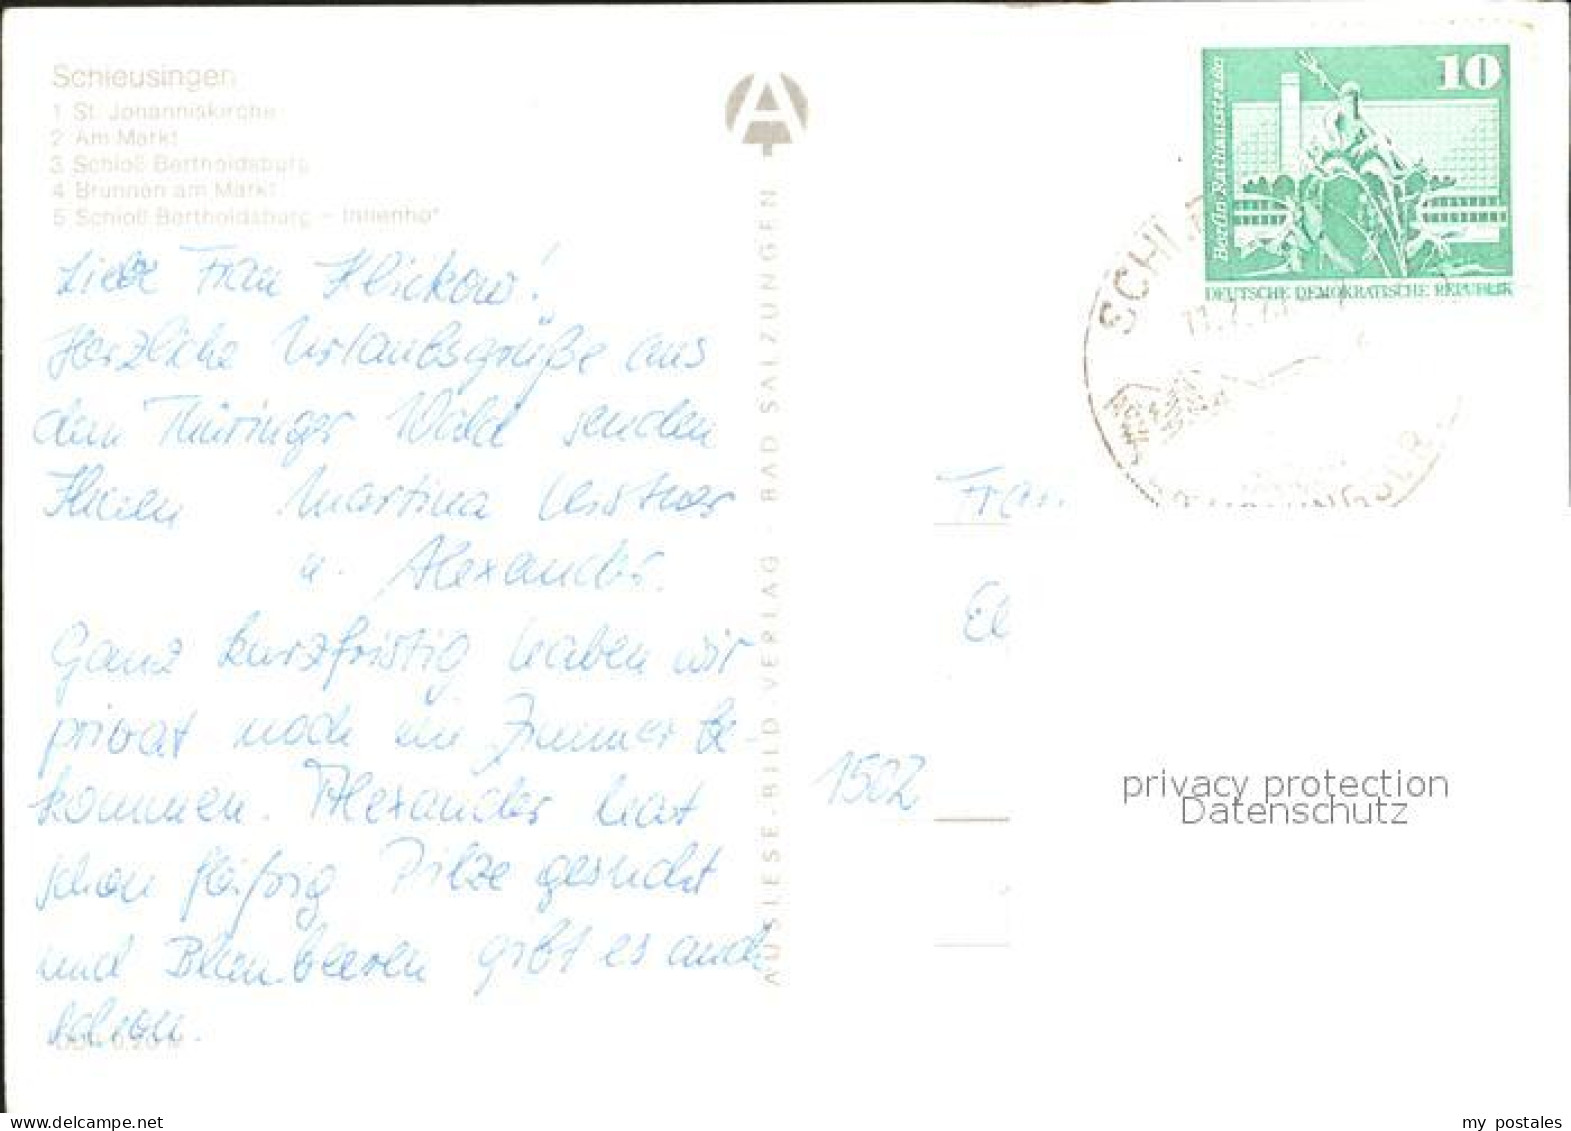 Schleusingen
1 St. Johanniskirche
2 Am Markt
3 Schloß Bertholdsburg
4 Brunnen am Markt
5 Schloß Bertholdsburg - Innenhof
Liebe Frau Klickow!
Herzliche Urlaubsgrüße aus
dem Thüringer Wald senden
Ihnen Martina
u. Alexander.
Ganz kurzfristig haben wir
privat noch ein Zimmer be-
kommen. Alexander hat
schon fleißig Pilze gesucht
und Blaubeeren gibt es auch
schon.
AUSLESE-BILD-VERLAG · BAD SALZUNGEN
A
10
Berlin, Rathausstraße
DEUTSCHE DEMOKRATISCHE REPUBLIK
Frau
El
1502
privacy protection
Datenschutz
my postales